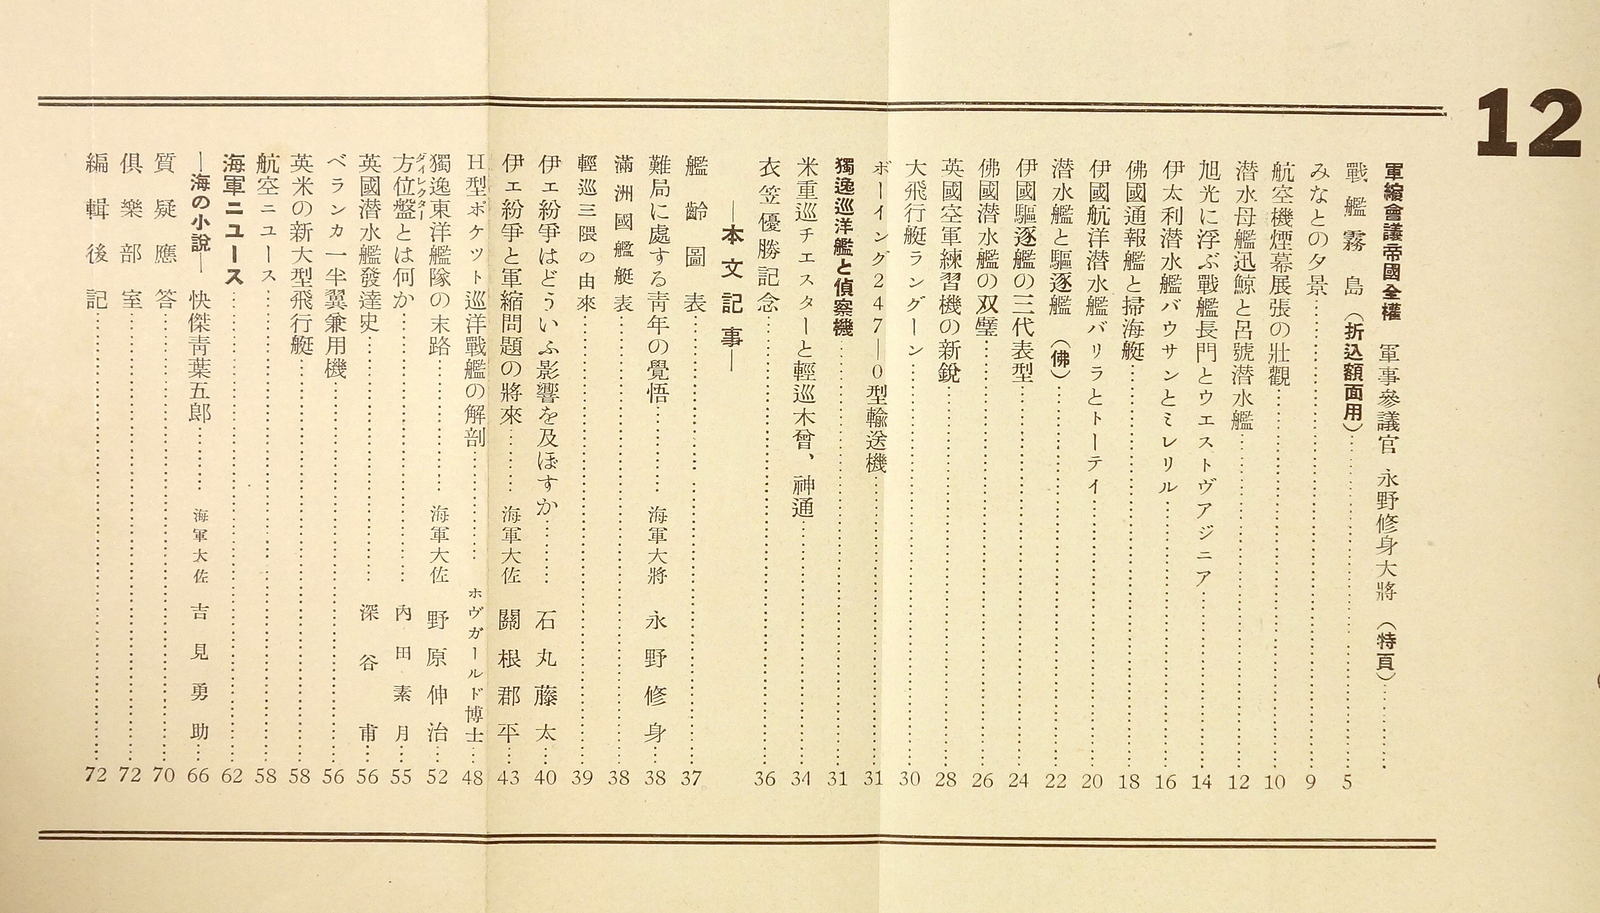 12
軍縮會議帝國全權 軍事參議官 永野修身大將 (特頁)
戰艦霧島(折込額面用) 5
みなとの夕景 9
航空機煙幕展張の壯觀 10
潜水母艦迅鯨と呂號潜水艦 12
旭光に浮ぶ戰艦長門とウエストヴアジニア 14
伊太利潜水艦バウサンとミレリル 16
佛國通報艦と掃海艇 18
伊國航洋潜水艦バリラとトーテイ 20
潜水艦と驅逐艦(佛) 22
伊國驅逐艦の三代表型 24
佛國潜水艦の双璧 26
英國空軍練習機の新銳 28
大飛行艇ラングーン 30
ボーイング247—0型輸送機 31
獨逸巡洋艦と偵察機 31
米重巡チエスターと輕巡木曾、神通 34
衣笠優勝記念 36
—本文記事—
艦齡圖表 37
難局に處する靑年の覺悟 海軍大將 永野修身 38
滿洲國艦艇表 38
輕巡三隈の由來 39
伊エ紛爭はどういふ影響を及ぼすか 石丸藤太 40
伊エ紛爭と軍縮問題の將來 海軍大佐 關根郡平 43
H型ポケツト巡洋戰艦の解剖 ホヴガールド博士 48
獨逸東洋艦隊の末路 海軍大佐 野原伸治 52
方位盤とは何か 內田素月 55
英國潜水艦發達史 深谷甫 56
ベランカ一半翼兼用機 56
英米の新大型飛行艇 58
航空ニユース 58
海軍ニユース 62
—海の小說— 快傑靑葉五郞 海軍大佐 吉見勇助 66
質疑應答 70
俱樂部室 72
編輯後記 72